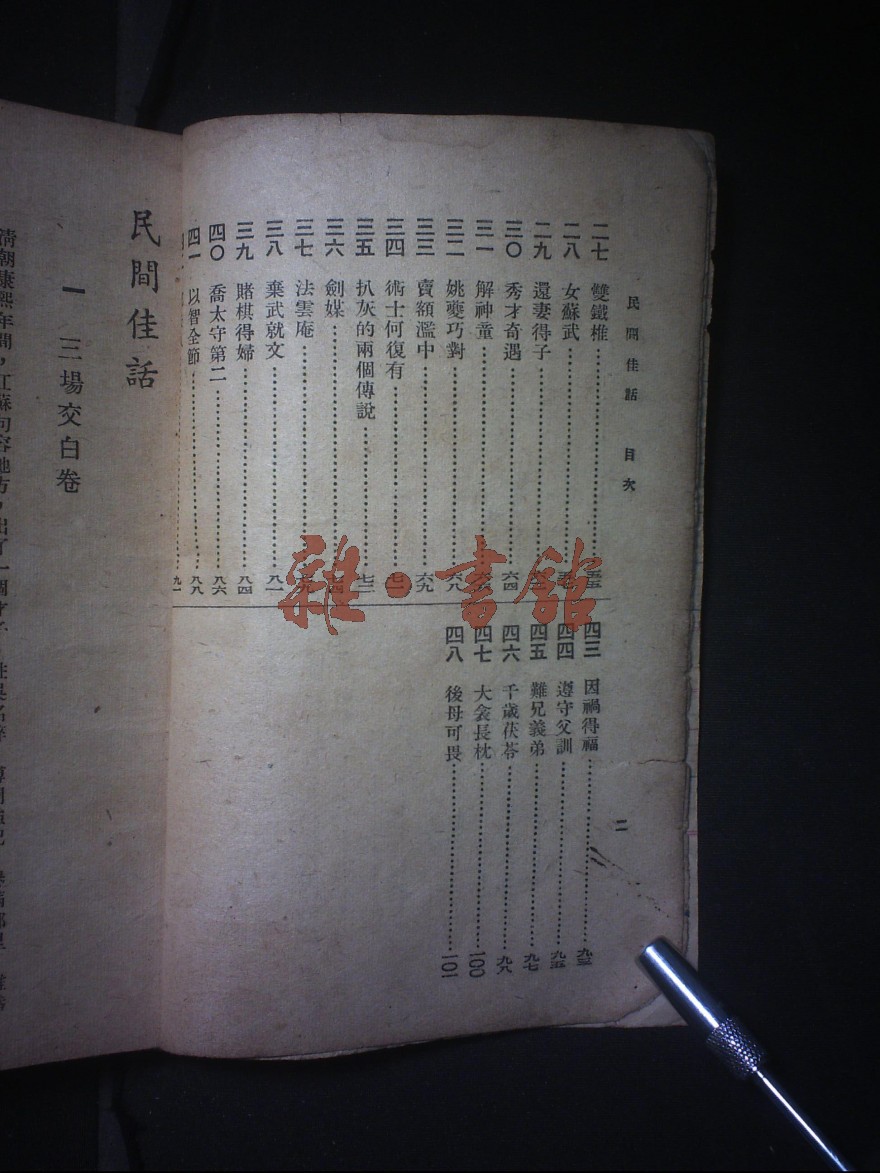 民間佳話　目次
二七　雙鐵椎
二八　女蘇武
二九　還妻得子
三〇　秀才奇遇　六四
三一　解神童
三二　姚夔巧對　六八
三三　賣額濫中　六九
三四　術士何復有
三五　扒灰的兩個傳說　七三
三六　劍媒
三七　法雲庵
三八　棄武就文　八一
三九　賭棋得婦　八四
四〇　喬太守第二　八六
四一　以智全節　八八
九一
四三　因禍得福　九三
四四　遵守父訓　九五
四五　難兄義弟　九七
四六　千歲茯苓　九八
四七　大衾長枕　一〇〇
四八　後母可畏　一〇一
二
民間佳話
一　三場交白卷
清朝康熙年間，江蘇句容地方，出了一個才子
雜·書館